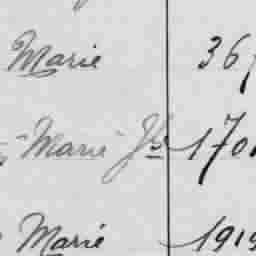 Marie 367
Marie Jh 1701
Marie 1919